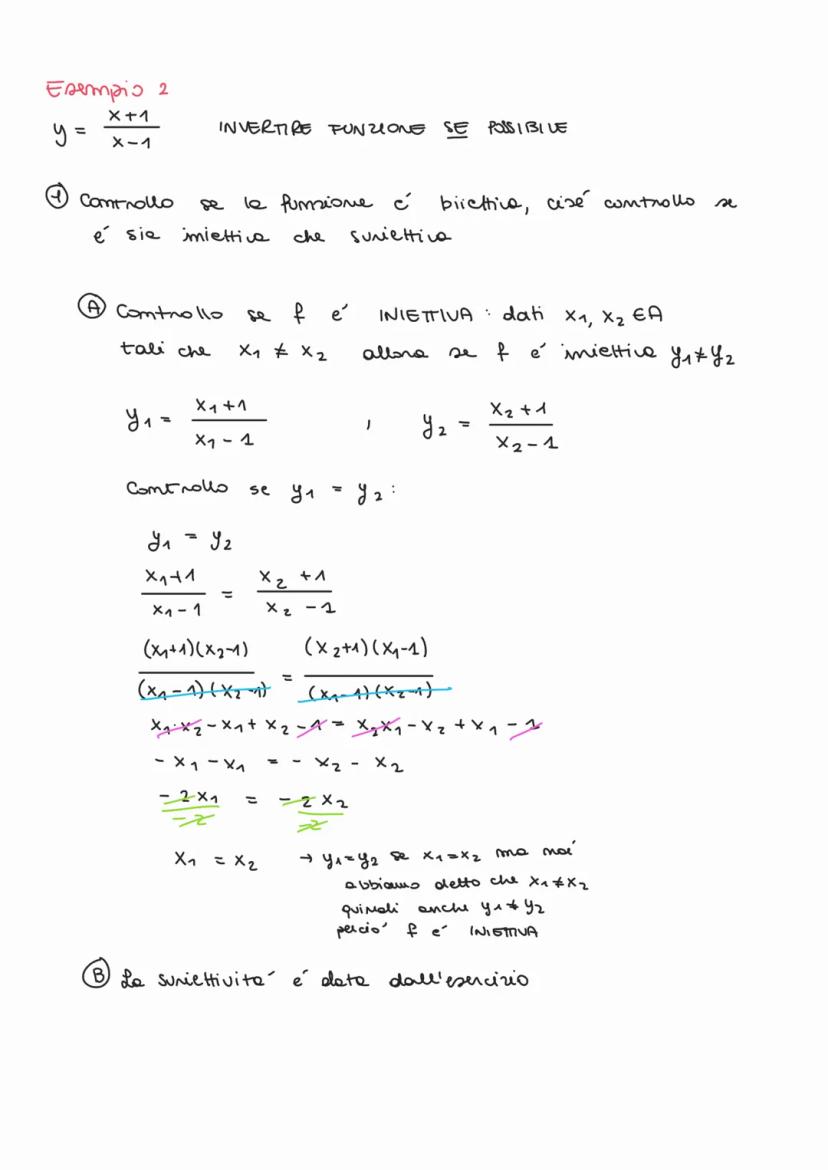 Esempio 2
y = x+1 / x-1 INVERTIRE FUNZIONE SE POSSIBILE
1 Controllo se la funzione é biiettiva, cioé controllo se
é sia iniettiva che suriettiva
A Controllo se f é INIETTIVA : dati x₁, x₂ ∈ A
tali che x₁ ≠ x₂ allora se f é iniettiva y₁ ≠ y₂
y₁ = x₁+1 / x₁-1 , y₂ = x₂+1 / x₂-1
Controllo se y₁ = y₂ :
y₁ = y₂
x₁+1 / x₁-1 = x₂+1 / x₂-1
(x₁+1)(x₂-1) / (x₁-1)(x₂-1) = (x₂+1)(x₁-1) / (x₁-1)(x₂-1)
x₁·x₂ - x₁ + x₂ - 1 = x₂x₁ - x₂ + x₁ - 1
- x₁ - x₁ = - x₂ - x₂
-2x₁ / -2 = -2x₂ / -2
x₁ = x₂ → y₁=y₂ se x₁=x₂ ma noi
abbiamo detto che x₁≠x₂
quindi anche y₁≠y₂
perció f é INIETTIVA
B La suriettivitá é data dall'esercizio